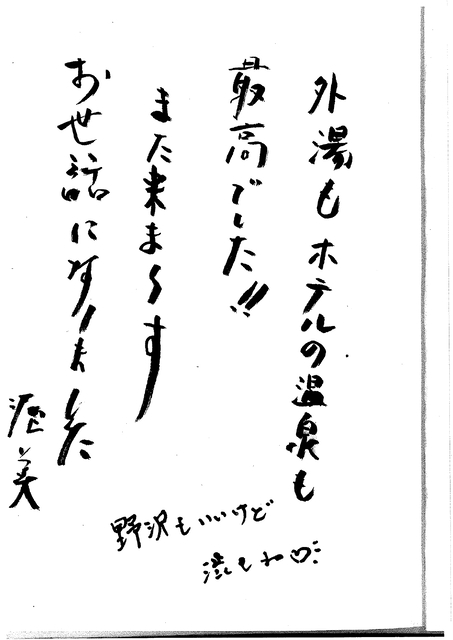 外湯もホテルの温泉も
最高でした!!
また来ま〜す
お世話になりました
野沢もいいけど
渋もネ♡